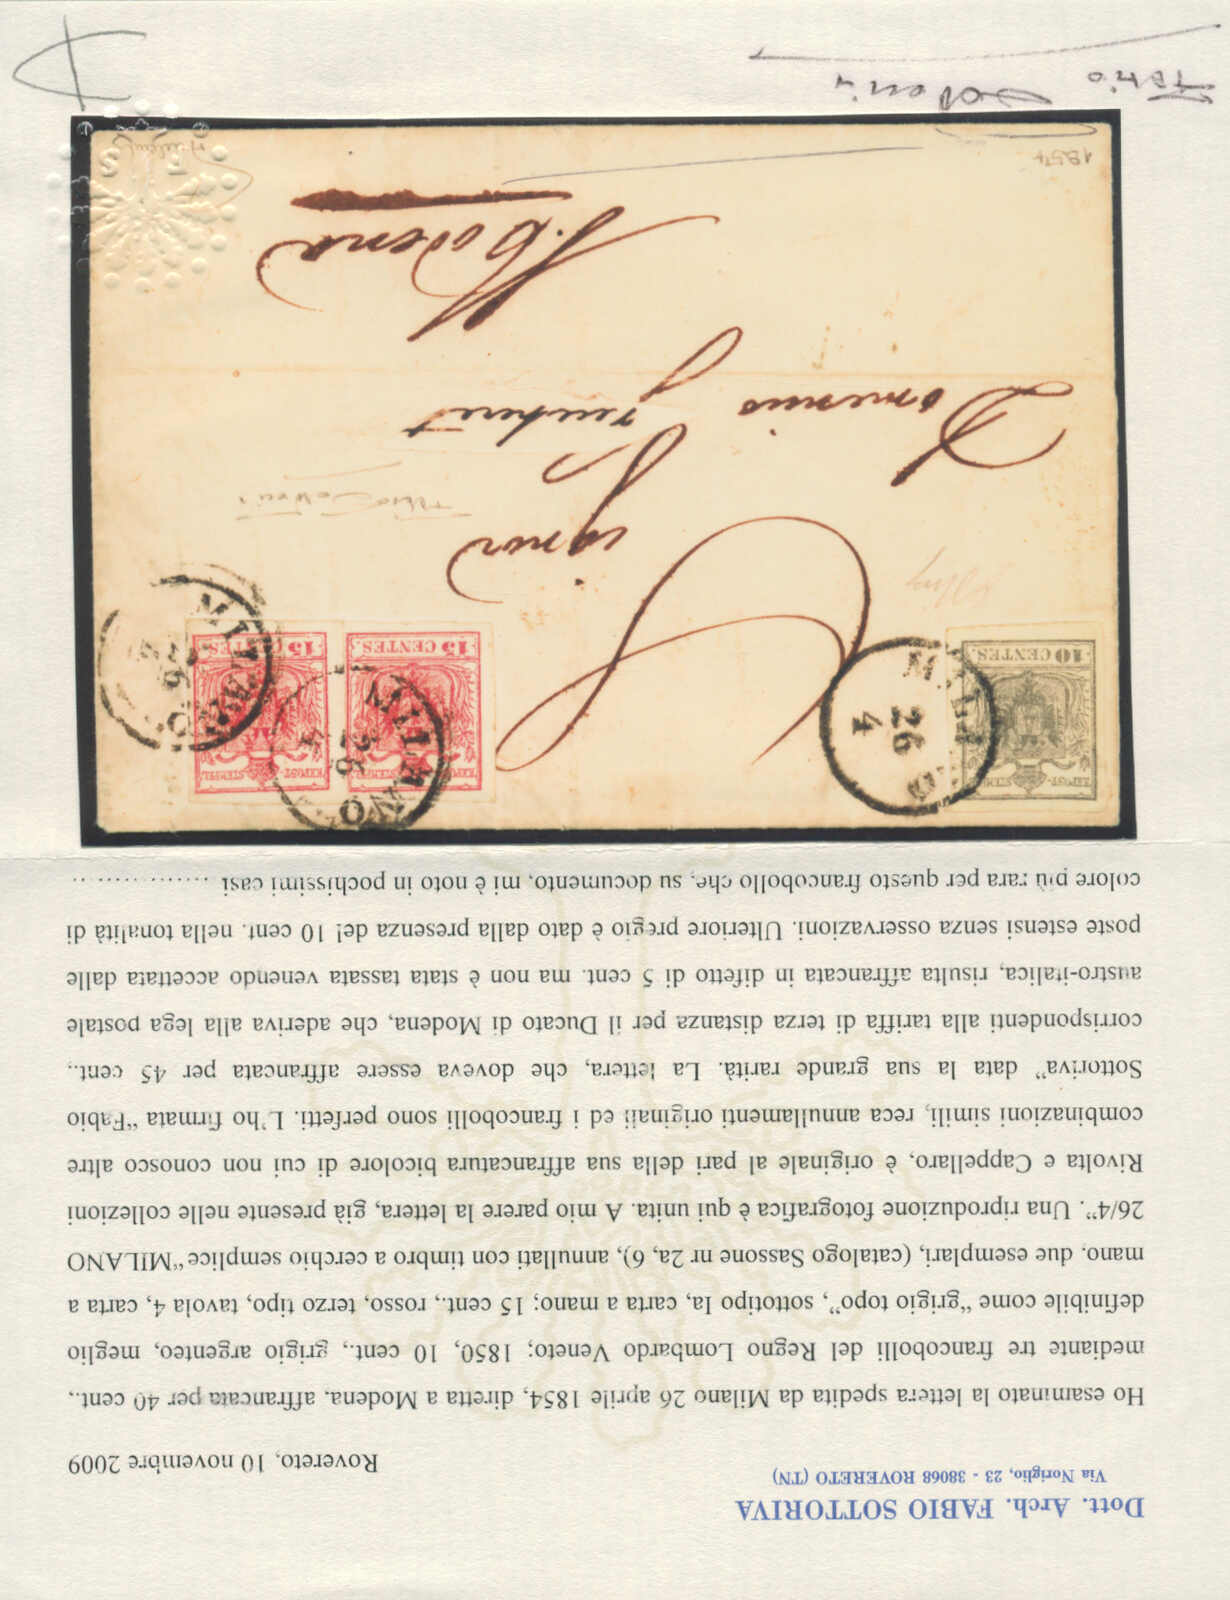 Dott. Arch. FABIO SOTTORIVA
Via Noriglio, 23 - 38068 ROVERETO (TN)
Rovereto, 10 novembre 2009
Ho esaminato la lettera spedita da Milano 26 aprile 1854, diretta a Modena, affrancata per 40 cent.,
mediante tre francobolli del Regno Lombardo Veneto; 1850, 10 cent., grigio argenteo, meglio
definibile come “grigio topo”, sottotipo Ia, carta a mano; 15 cent., rosso, terzo tipo, tavola 4, carta a
mano. due esemplari, (catalogo Sassone nr 2a, 6), annullati con timbro a cerchio semplice “MILANO
26/4”. Una riproduzione fotografica è qui unita. A mio parere la lettera, già presente nelle collezioni
Rivolta e Cappellaro, è originale al pari della sua affrancatura bicolore di cui non conosco altre
combinazioni simili, reca annullamenti originali ed i francobolli sono perfetti. L’ho firmata “Fabio
Sottoriva” data la sua grande rarità. La lettera, che doveva essere affrancata per 45 cent.,
corrispondenti alla tariffa di terza distanza per il Ducato di Modena, che aderiva alla lega postale
austro-italica, risulta affrancata in difetto di 5 cent. ma non è stata tassata venendo accettata dalle
poste estensi senza osservazioni. Ulteriore pregio è dato dalla presenza del 10 cent. nella tonalità di
colore più rara per questo francobollo che, su documento, mi è noto in pochissimi casi ..................
KKPOST-STEMPEL
10 CENTES.
MILANO
26
4
KKPOST-STEMPEL
15 CENTES.
MILANO
26
4
KKPOST-STEMPEL
15 CENTES.
MILANO
26
Signor
Domenico
Modena
1854
Fabio Sottoriva